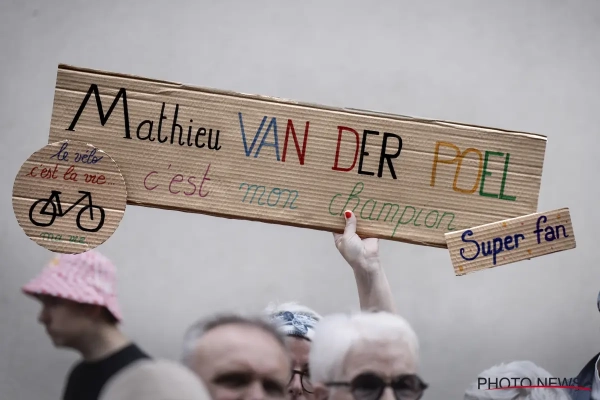 Mathieu VAN DER POEL
c'est mon champion
le vélo
c'est la vie
ma vie
Super fan
PHOTO NEWS